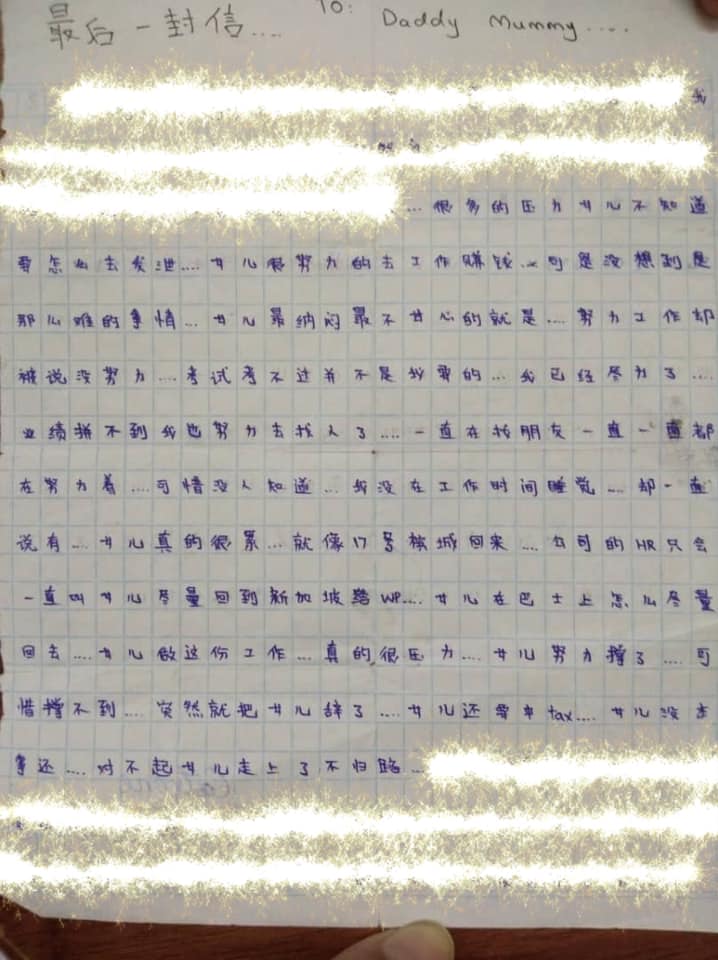 最后一封信.... TO: Daddy Mummy....
我
....很多的压力女儿不知道
要怎么去发泄....女儿很努力的去工作赚钱...可是没想到是
那么难的事情...女儿最纳闷最不开心的就是....努力工作却
被说没努力....考试考不过并不是我要的...我已经尽力了....
业绩拼不到我也努力去找人了....一直在找朋友一直一直都
在努力着....可惜没人知道...我没在工作时间睡觉....却一直
说有....女儿真的很累...就像17号槟城回来....公司的HR只会
一直叫女儿尽量回到新加坡 WP....女儿在巴士上怎么尽量
回去....女儿做这份工作...真的很压力....女儿努力撑了....可
惜撑不到....突然就把女儿辞了....女儿还要 tax....女儿没本
事还....对不起女儿走上了不归路...